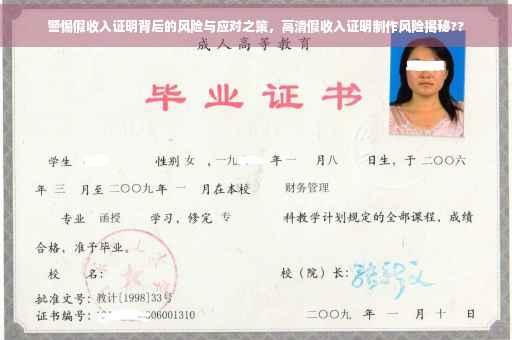 警惕假收入证明背后的风险与应对之策，高清假收入证明制作风险揭秘??
成人高等教育
毕业证书
学生 性别 女 ，一九 年 一 月 八 日生，于 二〇〇六
年 三 月至 二〇〇九 年 一 月在本校 财务管理
专业 函授 学习，修完 专 科教学计划规定的全部课程，成绩
合格，准予毕业。
校 名： 校（院）长：
批准文号：教计[1998]33号
证书编号： 06001310 二〇〇九 年 一 月 十 日